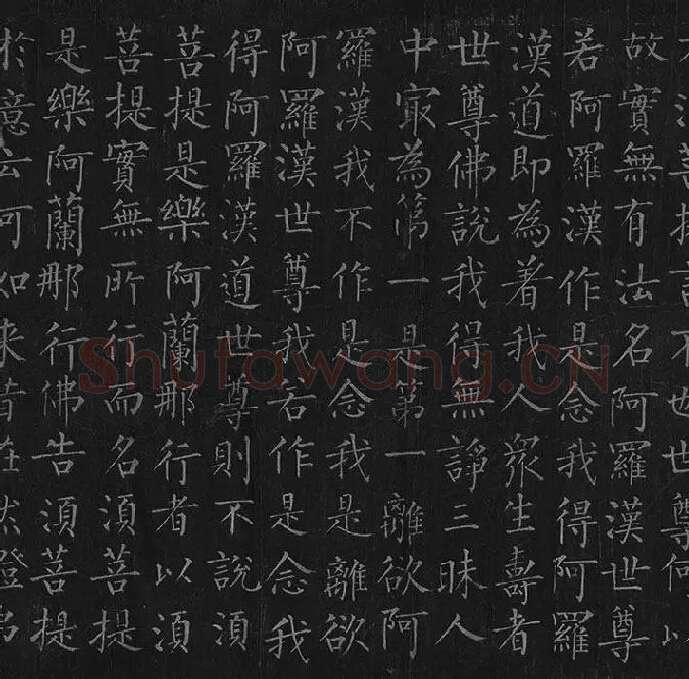 菩提言不也世尊何以
故實無有法名阿羅漢世尊
若阿羅漢作是念我得阿羅
漢道即為著我人眾生壽者
世尊佛說我得無諍三昧人
中㝡為第一是第一離欲阿
羅漢我不作是念我是離欲
阿羅漢世尊我若作是念我
得阿羅漢道世尊則不說須
菩提是樂阿蘭那行者以須
菩提實無所行而名須菩提
是樂阿蘭那行佛告須菩提
於意云何如来昔在然燈
Shufawang.CN